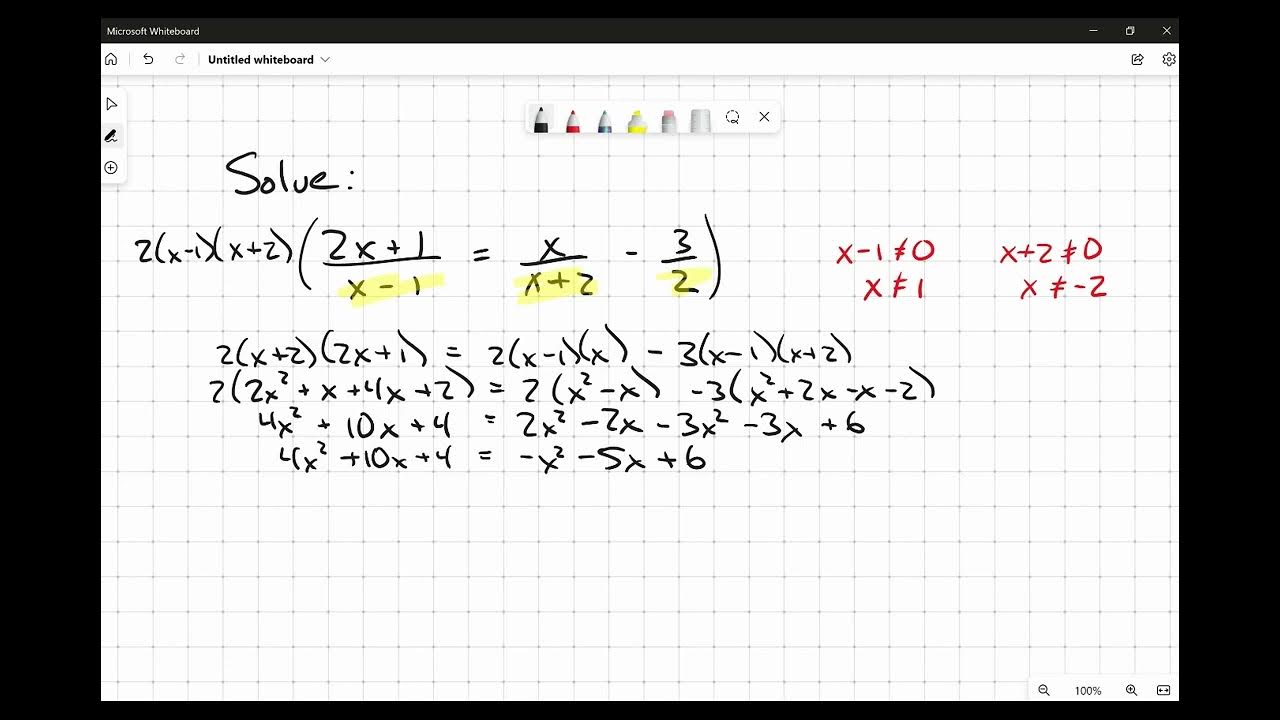 Microsoft Whiteboard
Untitled whiteboard
Solve:
2(x-1)(x+2)( (2x+1)/(x-1) = x/(x+2) - 3/2 )
x-1≠0 x+2≠0
x≠1 x≠-2
2(x+2)(2x+1) = 2(x-1)(x) - 3(x-1)(x+2)
2(2x²+x+4x+2) = 2(x²-x) -3(x²+2x-x-2)
4x² + 10x + 4 = 2x² - 2x - 3x² - 3x + 6
4x² + 10x + 4 = -x² - 5x + 6
100%